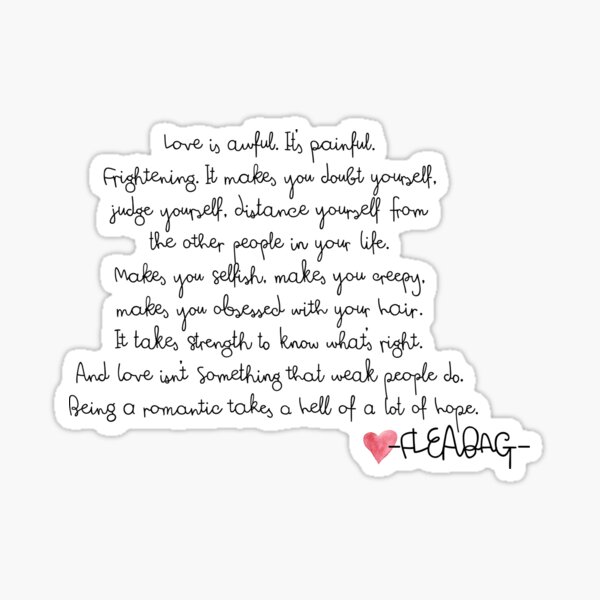 Love is awful. It's painful.
Frightening. It makes you doubt yourself,
judge yourself, distance yourself from
the other people in your life.
Makes you selfish, makes you creepy,
makes you obsessed with your hair.
It takes strength to know what's right.
And love isn't something that weak people do.
Being a romantic takes a hell of a lot of hope.
-FLEABAG-